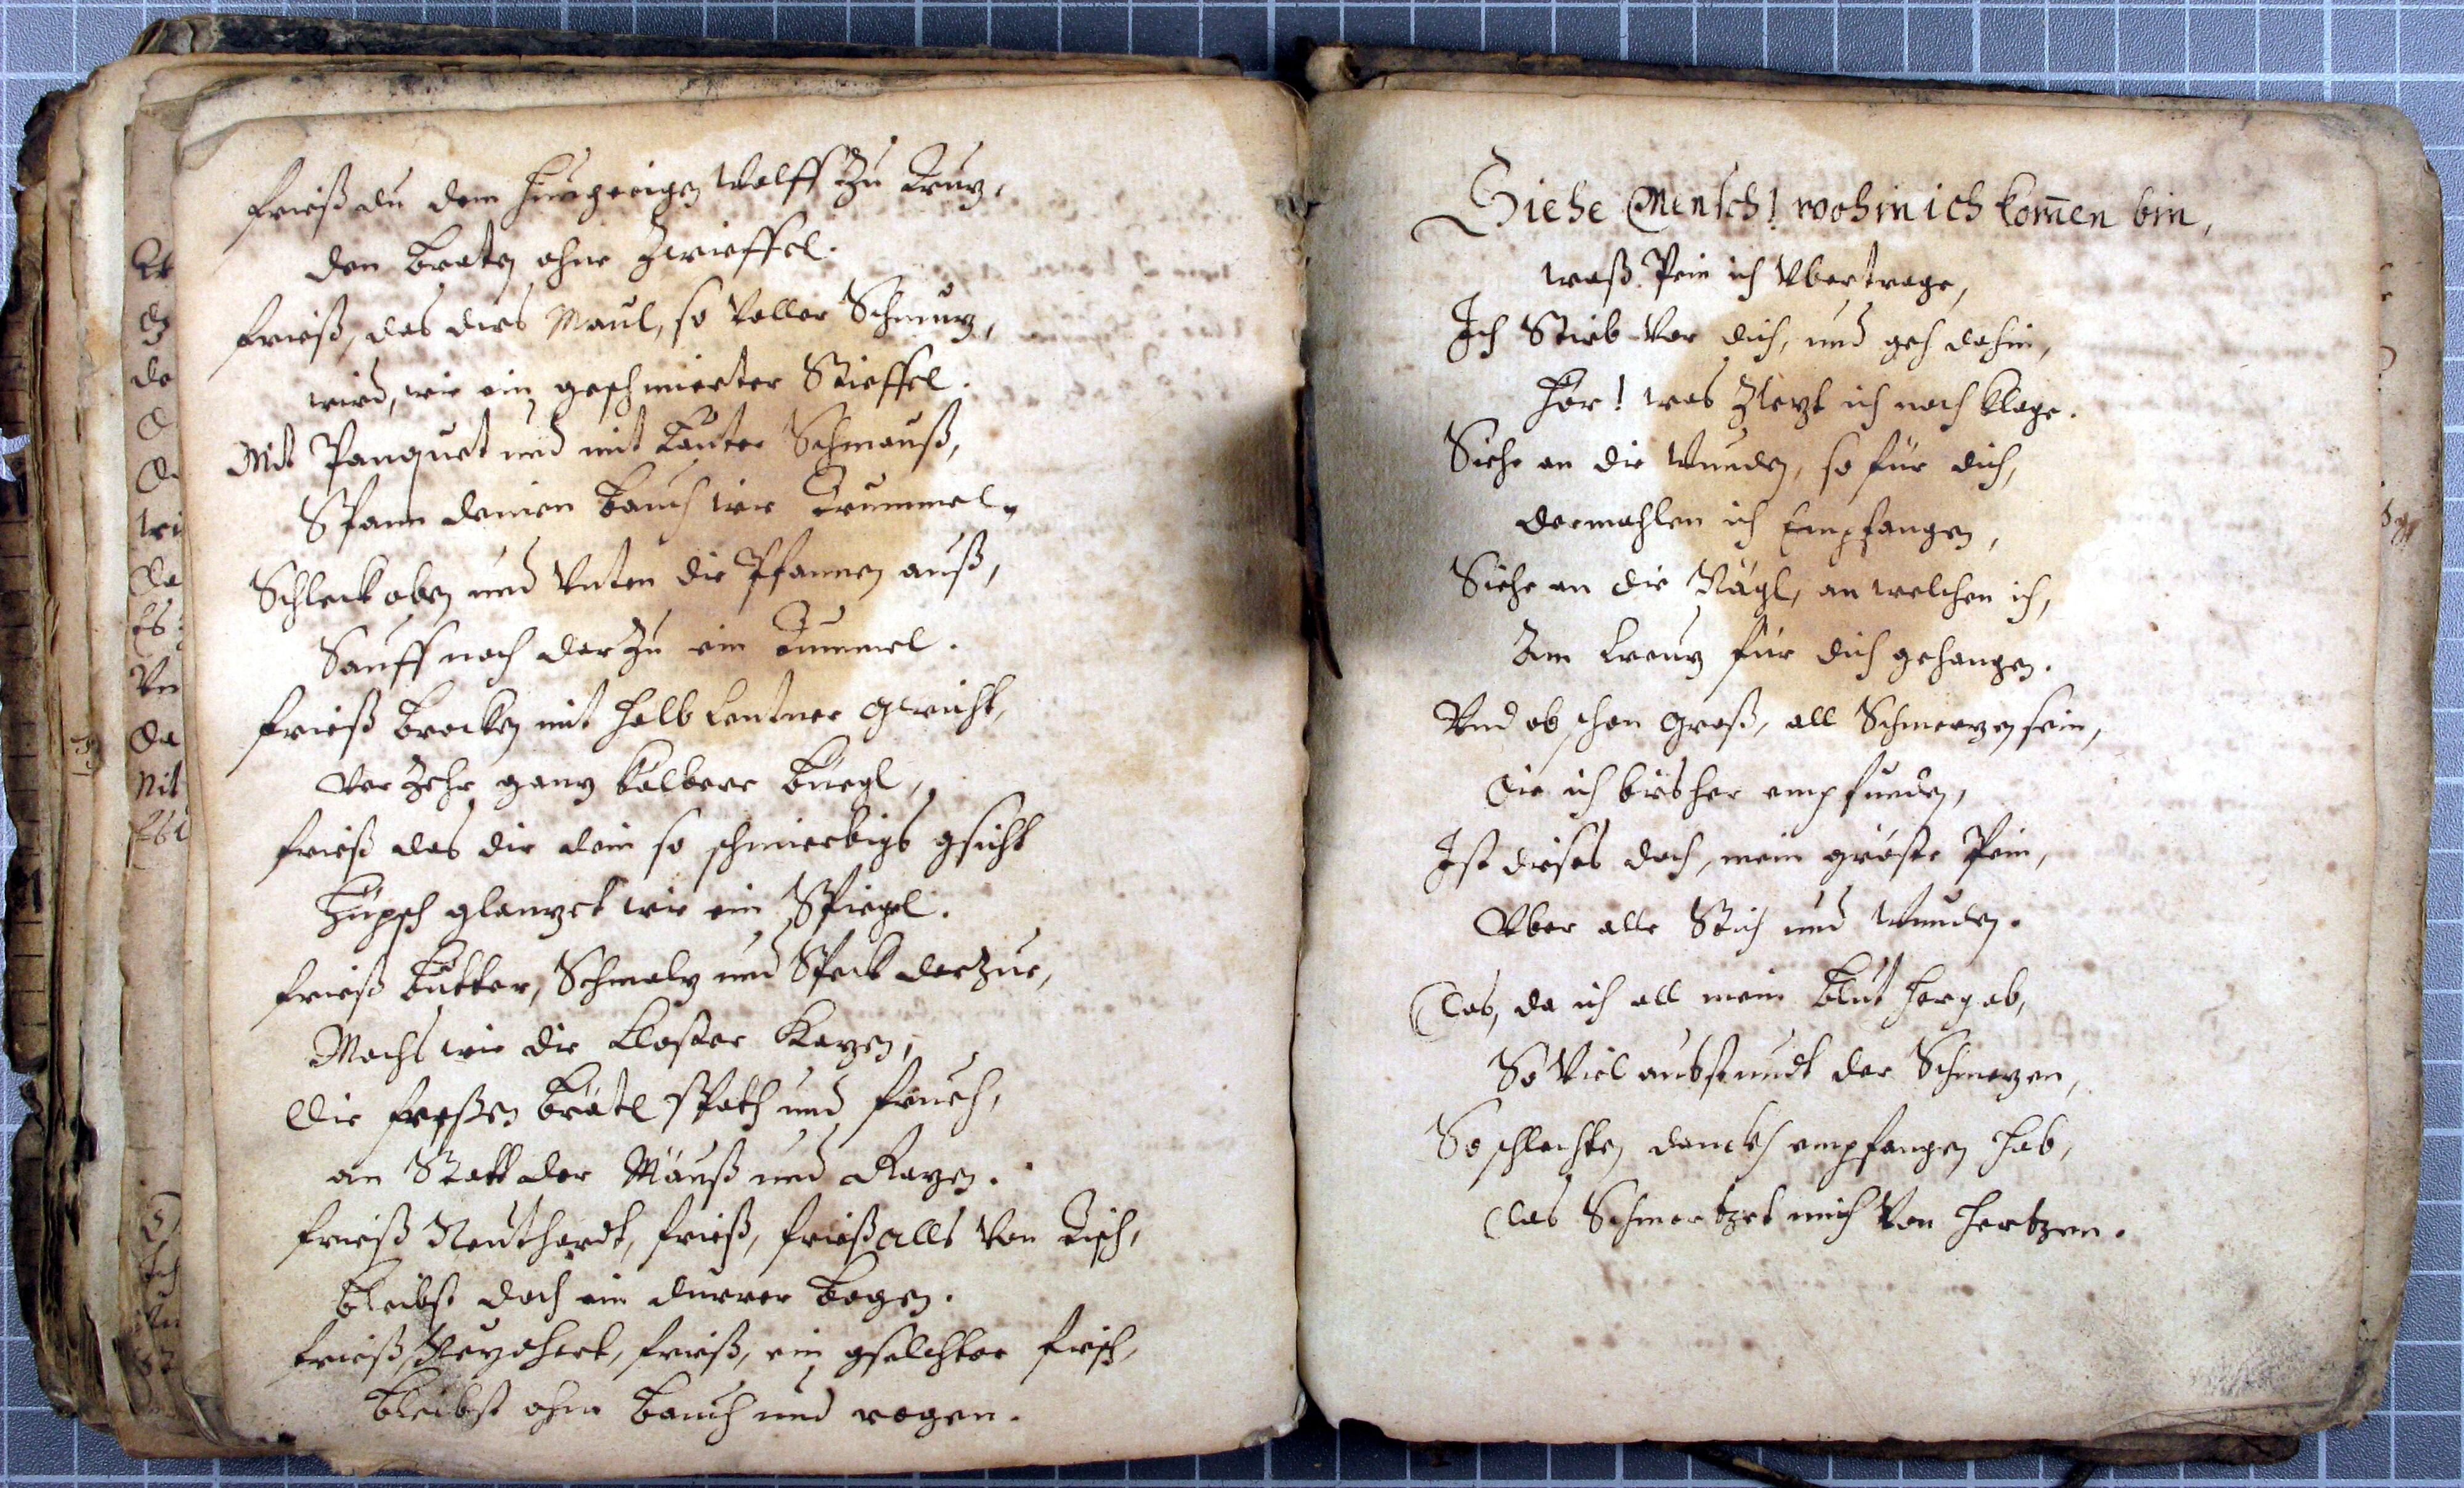 frieß du dem hungerigen Wolff Zu Truz,
den braten ohne Zwieffel.
frieß, das dirs Maul, so Voller Schmuz,
wird, wie ein geschmierter Stieffel.
Mit Panquet und mit Lauter Schmauß,
Spann deinen bauch wie Trummel,
Schleck oben und Unten die Pfannen auß,
Sauff noch darzu ein Tummel.
frieß brocken mit halb Centner gwicht,
Verzehr ganz kälbere büegl,
frieß das dir dein so schmierbigs gsicht
hüpsch glanzet wie ein Spiegel.
frieß butter, Schmalz und Speck darzue,
Machs wie die Closter Kazen,
die fressen brätl spath und frueh,
an Statt der Mäuß und Razen.
frieß Neuthardt, frieß, frieß alls Von Tisch,
bleibst doch ein durrer bogen.
frieß, Neydhart, frieß, ein gselchter fisch,
bleibst ohne bauch und rogen.
Siehe Mensch! wohin ich kom̄en bin,
waß Pein ich Ubertrage,
Ich Stirb Vor dich, und geh dahin,
hör! was Zlezt ich noch klage.
Siehe an die Wunden, so für dich,
dermahlen ich Empfangen,
Siehe an die Nägl, an welchen ich,
Am Creuz für dich gehangen.
Und ob schon groß, all Schmerzen sein,
die ich bisher empfunden,
Ist dises doch, mein gröste Pein,
Uber alle Stich und Wunden.
Das, da ich all mein blut hergab,
So Viel ausstundt der Schmerzen,
So schlechten danckh empfangen hab,
das Schmertzet mich Von hertzen.